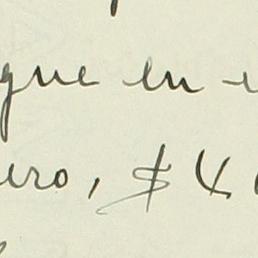 que en
ero, $ 4